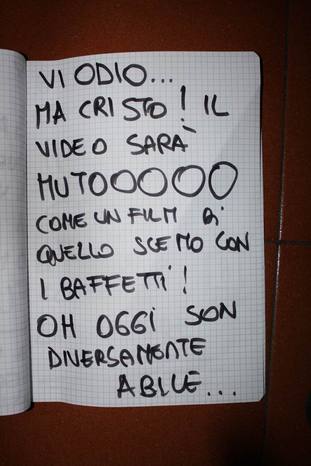 VI ODIO...
MA CRISTO! IL
VIDEO SARÀ
MUTOOOOO
COME UN FILM DI
QUELLO SCEMO CON
I BAFFETTI!
OH OGGI SON
DIVERSAMENTE
ABILE...